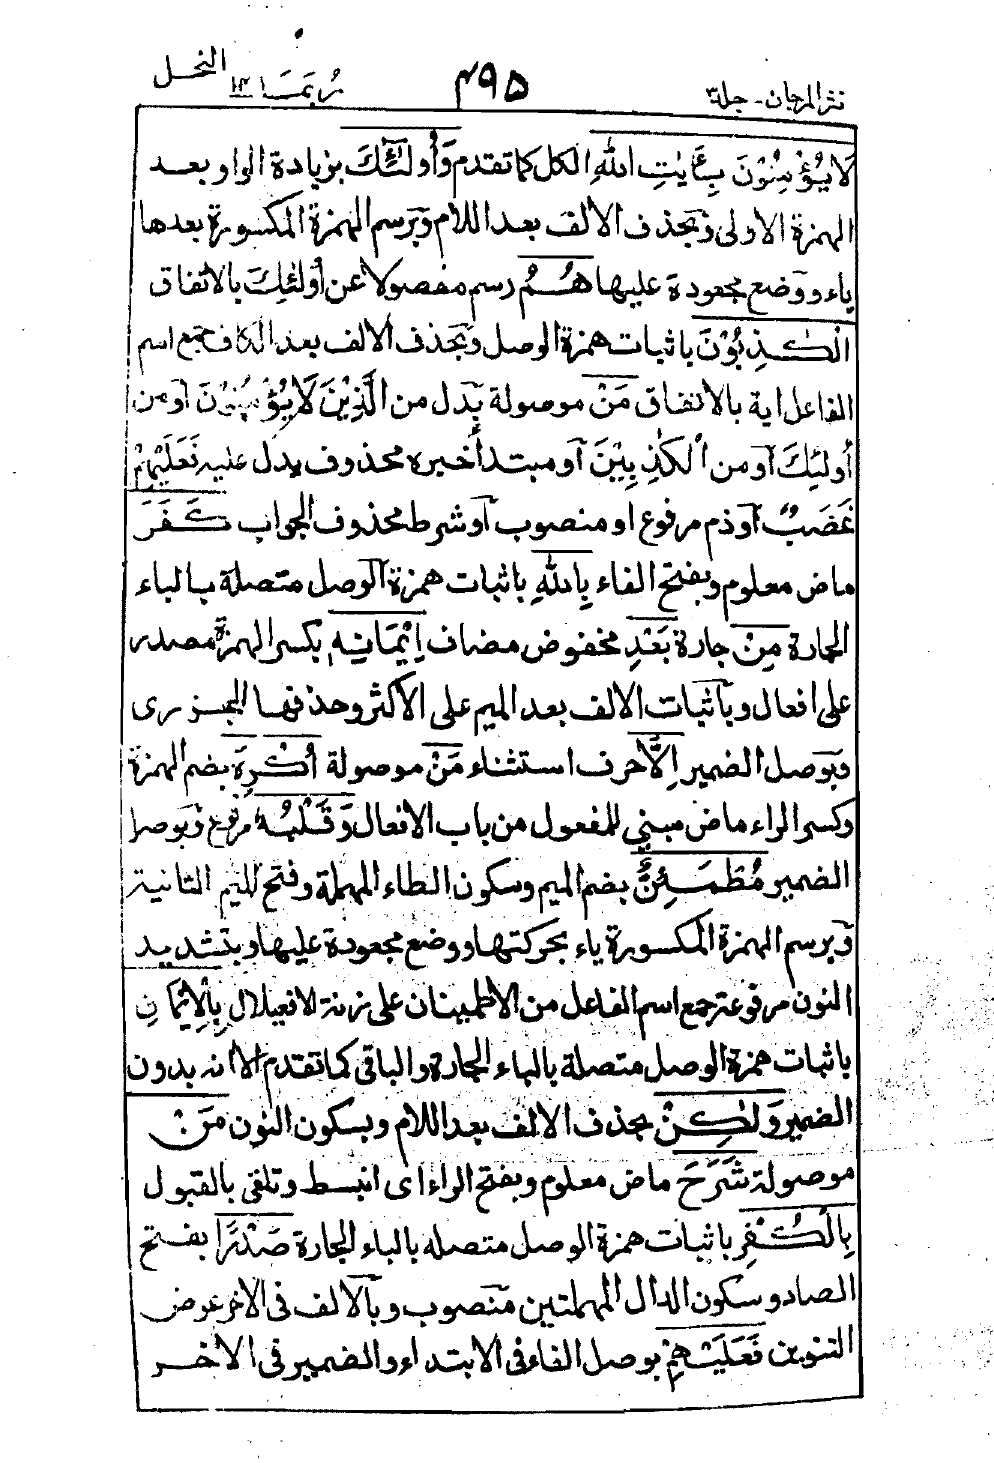 نثر المرجان - جلد ٣ ٤٩٥ ربما ١٤ النحل
لَا يُؤْمِنُوْنَ بِـَٔايٰتِ اللّٰهِ الكل كما تقدم وَأُولٰٓئِكَ بزيادة الواو بعد
الهمزة الاولى وبحذف الالف بعد اللام وبرسم الهمزة المكسورة بعدها
ياء ووضع مجعودة عليها هُمُ رسم مفصولا عن أولٰئك بالاتفاق
الْكٰذِبُوْنَ باثبات همزة الوصل وبحذف الالف بعد الكاف جمع اسم
الفاعل اية بالاتفاق مَنْ موصولة بدل من الَّذِيْنَ لَا يُؤْمِنُوْنَ أو من
أُولٰئِكَ أو من الْكٰذِبِيْنَ أو مبتدأ خبره محذوف يدل عليه فَعَلَيْهِمْ
غَضَبٌ أو ذم مرفوع او منصوب أو شرط محذوف الجواب كَفَرَ
ماض معلوم وبفتح الفاء بِاللّٰهِ باثبات همزة الوصل متصلة بالباء
الجارة مِنْ جارة بَعْدِ مخفوض مضاف اِيْمَانِهٖ بكسر الهمزة مصدر
على افعال وباثبات الالف بعد الميم على الأكثر وحذفها الجزرى
وبوصل الضمير اِلَّا حرف استثناء مَنْ موصولة اُكْرِهَ بضم الهمزة
وكسر الراء ماض مبني للمفعول من باب الافعال وَقَلْبُهٗ مرفوع وبوصل
الضمير مُطْمَئِنٌّ بضم الميم وسكون الطاء المهملة وفتح الميم الثانية
وبرسم الهمزة المكسورة ياء بحركتها ووضع مجعودة عليها وبتشديد
النون مرفوعة جمع اسم الفاعل من الاطمينان على زنة الافعيلال بِالْاِيْمَانِ
باثبات همزة الوصل متصلة بالباء الجارة والباقى كما تقدم الا انه بدون
الضمير وَلٰكِنْ بحذف الالف بعد اللام وبسكون النون مَنْ
موصولة شَرَحَ ماض معلوم وبفتح الراء اى انبسط وتلقى بالقبول
بِالْكُفْرِ باثبات همزة الوصل متصله بالباء الجارة صَدْرًا بفتح
الصاد وسكون الدال المهملتين منصوب وبالالف فى الاخر عوض
التنوين فَعَلَيْهِمْ بوصل الفاء فى الابتداء والضمير فى الاخر